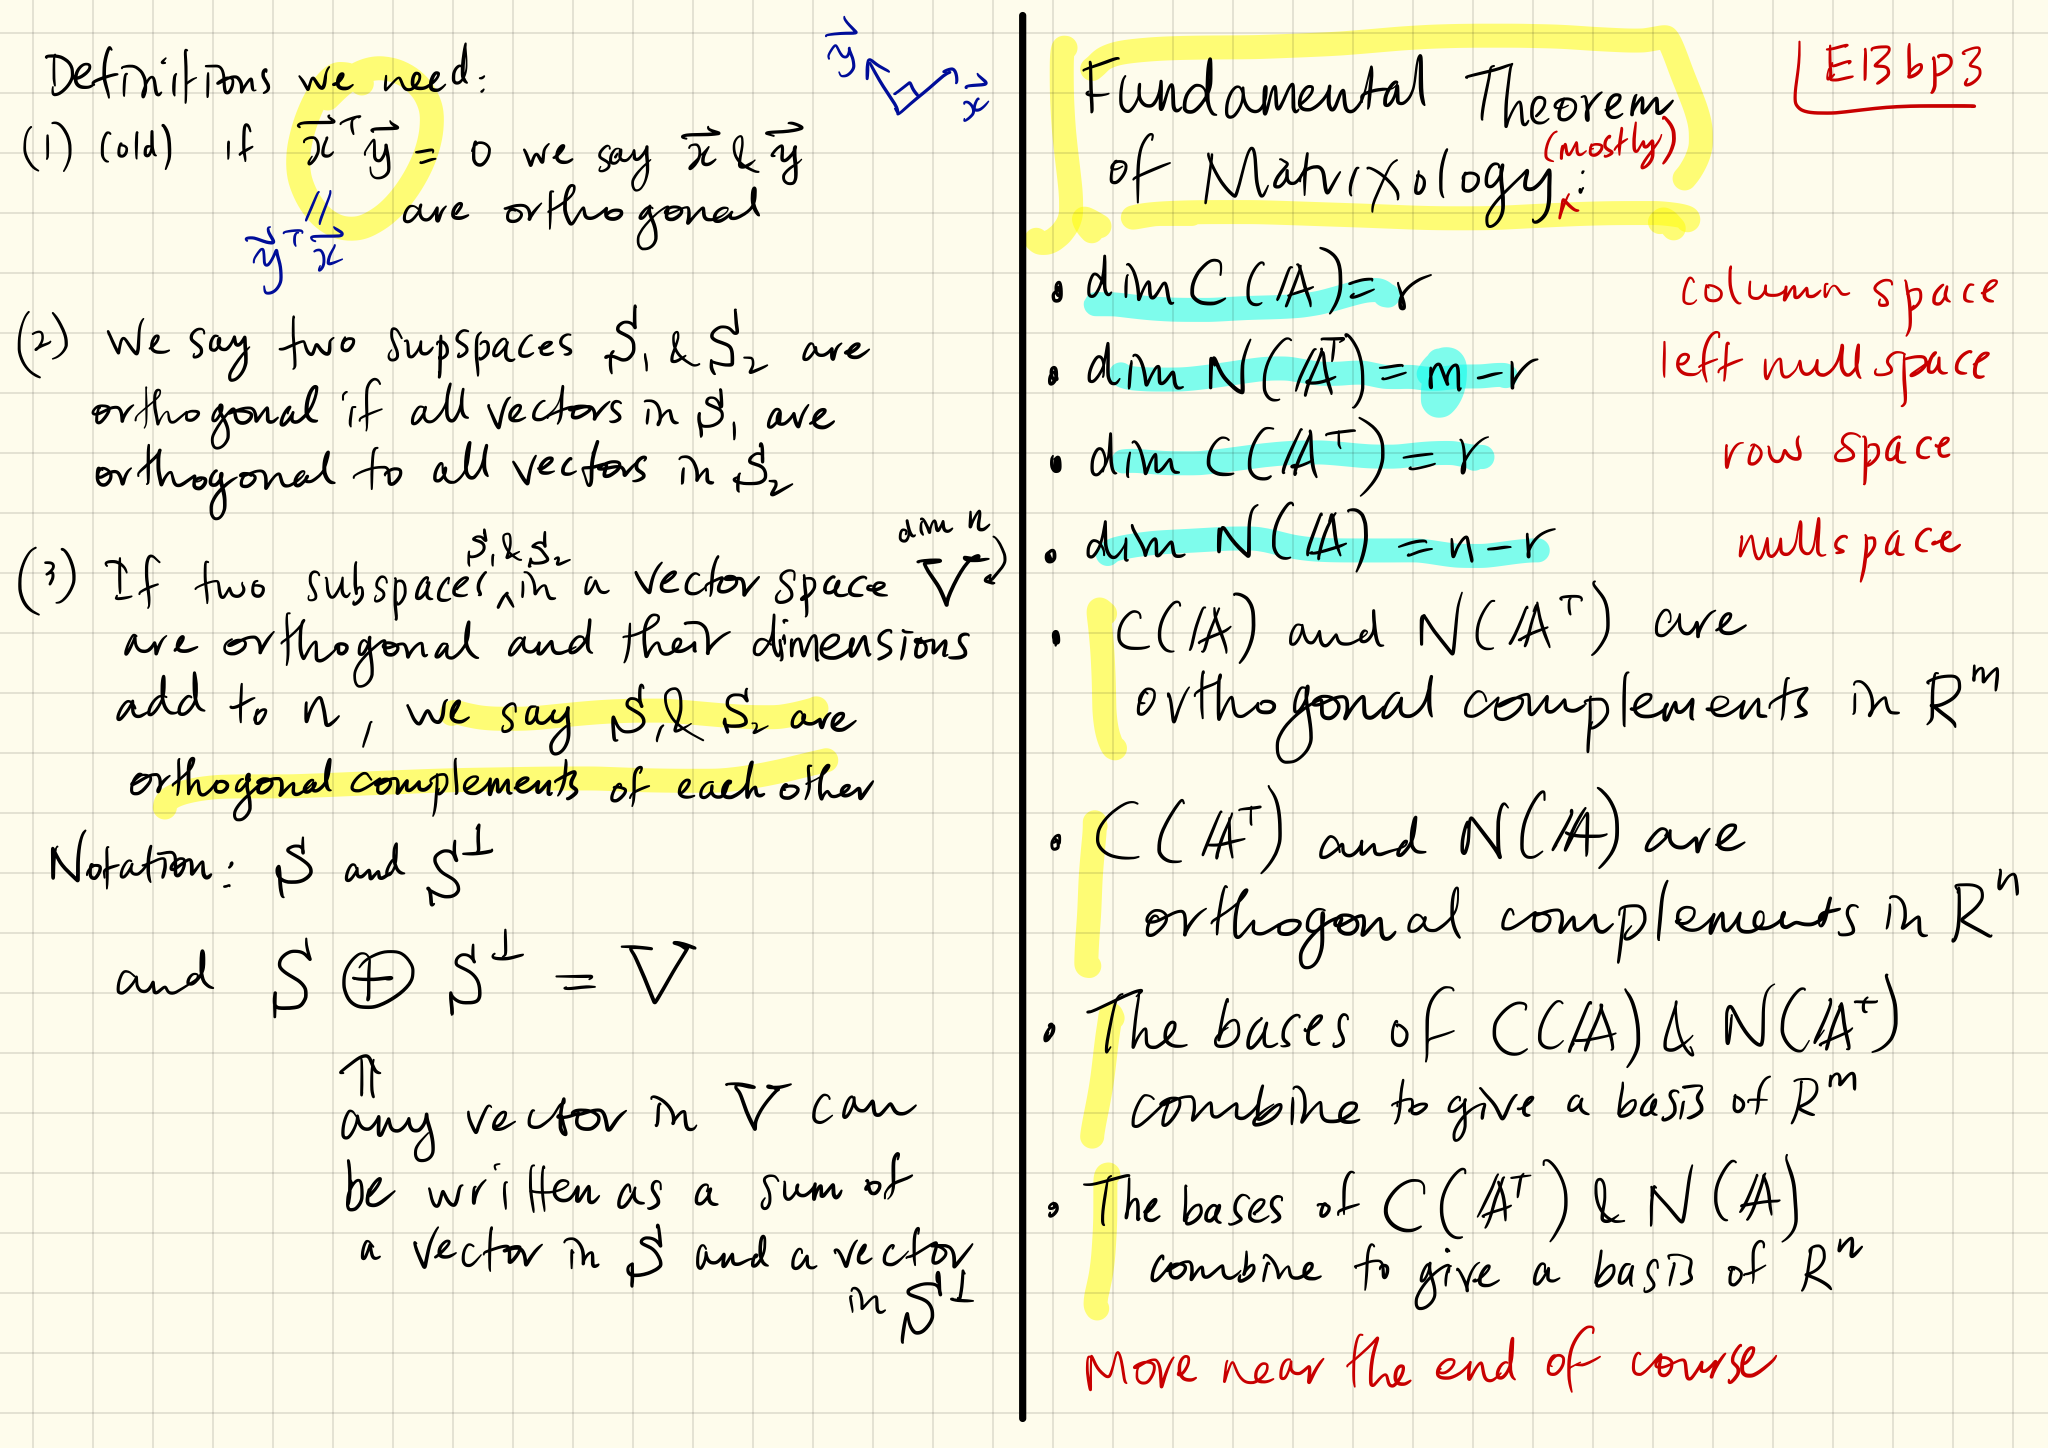 Definitions we need:
(1) (old) if x⃗ᵀy⃗ = 0 we say x⃗ & y⃗
are orthogonal
||
y⃗ᵀx⃗
y⃗
x⃗
(2) We say two supspaces S₁ & S₂ are
orthogonal if all vectors in S₁ are
orthogonal to all vectors in S₂
(3) If two subspaces S₁ & S₂ in a vector space V dim n
are orthogonal and their dimensions
add to n, we say S₁ & S₂ are
orthogonal complements of each other
Notation: S and S⊥
and S ⊕ S⊥ = V
⇑
any vector in V can
be written as a sum of
a vector in S and a vector
in S⊥
E13bp3
Fundamental Theorem
of Matrixology (mostly):
• dim C(A) = r column space
• dim N(Aᵀ) = m-r left nullspace
• dim C(Aᵀ) = r row space
• dim N(A) = n-r nullspace
• C(A) and N(Aᵀ) are
orthogonal complements in Rᵐ
• C(Aᵀ) and N(A) are
orthogonal complements in Rⁿ
• The bases of C(A) & N(Aᵀ)
combine to give a basis of Rᵐ
• The bases of C(Aᵀ) & N(A)
combine to give a basis of Rⁿ
More near the end of course